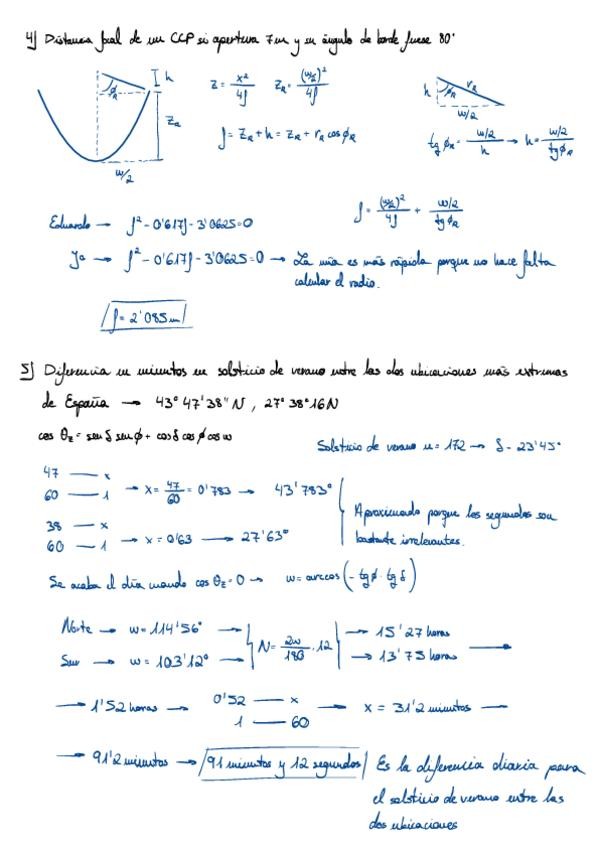 4) Distancia focal de un CCP si apertura 7m y un ángulo de borde fuese 80°
h
φR
ZR
w/2
Z = x²/4f   ZR = (w/2)²/4f
f = ZR + h = ZR + rR cos φR
h
φR
rR
w/2
tg φR = (w/2)/h → h = (w/2)/tg φR
f = (w/2)²/4f + (w/2)/tg φR
Eduardo → f² - 0'617f - 3'0625 = 0
Yo → f² - 0'617f - 3'0625 = 0 → La mía es más rápida porque no hace falta
calcular el radio.
f = 2'085m
5) Diferencia en minutos en solsticio de verano entre las dos ubicaciones más extremas
de España → 43° 47' 38'' N , 27° 38° 16N
cos θz = sen δ sen φ + cos δ cos φ cos w
Solsticio de verano n = 172 → δ - 23'45°
47 — x
60 — 1 → x = 47/60 = 0'783 → 43'783°
38 — x
60 — 1 → x = 0'63 → 27'63°
Aproximado porque los segundos son
bastante irrelevantes.
Se acaba el día cuando cos θz = 0 → w = arccos (- tg φ · tg δ)
Norte → w = 114'56° → N = 2w/180 · 12 → 15'27 horas →
Sur → w = 103'12° → → 13'75 horas
→ 1'52 horas → 0'52 — x → x = 31'2 minutos →
1 — 60
→ 91'2 minutos → 91 minutos y 12 segundos Es la diferencia diaria para
el solsticio de verano entre las
dos ubicaciones